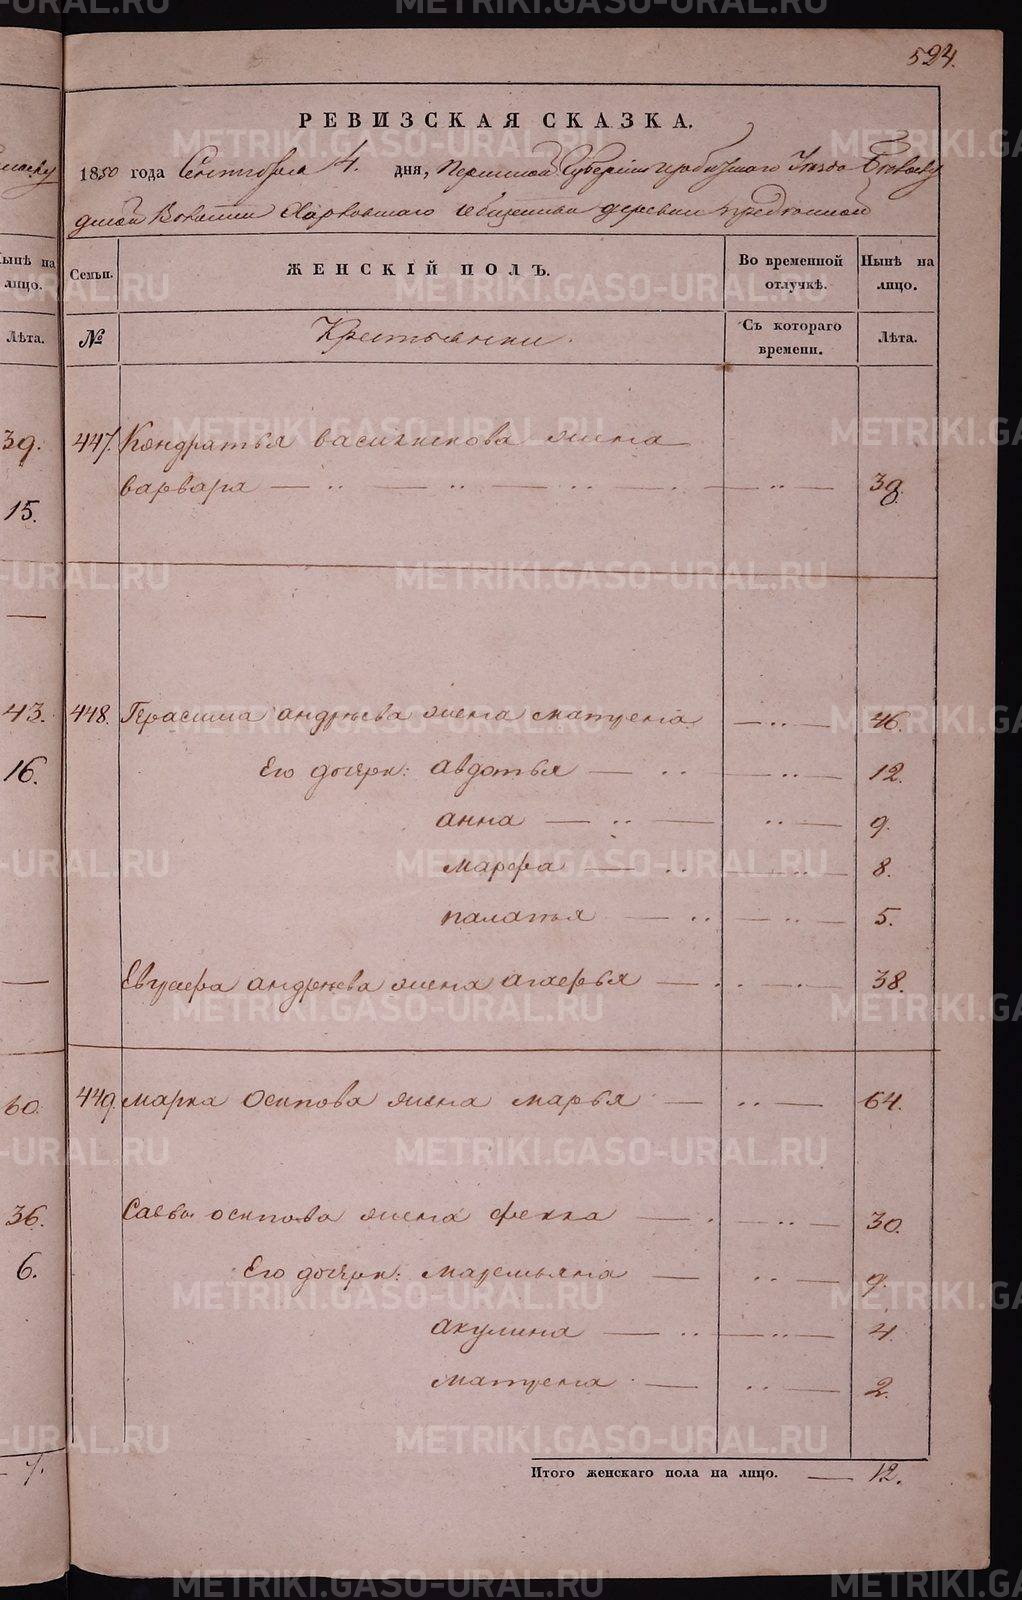 524.
РЕВИЗСКАЯ СКАЗКА.
1850 года Сентября 4. дня, Пермской Губернiи Ирбитскаго Уѣзда
Волости Харловскаго общества деревни
Семьи. ЖЕНСКІЙ ПОЛЪ. Во временной отлучкѣ. Нынѣ на лицо.
№ Крестьянки. Съ котораго времени. Лѣта.
447. Кондратья васильикова жена
варвара — ·· — ·· — ·· — · — ·· — 39.
448. Герасима андрѣева жена матрена — ·· — 46.
Его дочери: авдотья — ·· — — ·· — 12.
анна — ·· — ·· — 9.
марфа — ·· — ·· — 8.
палатья — ·· — ·· — 5.
андрѣева жена агафья — ·· — · — 38.
449. марка осипова жена марья — ·· — 64.
Савы осипова жена фекла — · — ·· — 30.
Его дочери: маремьяна — ·· — 9.
акулина — ·· — ·· — 4.
матрена · — ·· — 2.
Итого женскаго пола на лицо. — 12.
Нынѣ на
лицо.
Лѣта.
39.
15.
—
43.
16.
—
60.
36.
6.
— 7.
METRIKI.GASO-URAL.RU